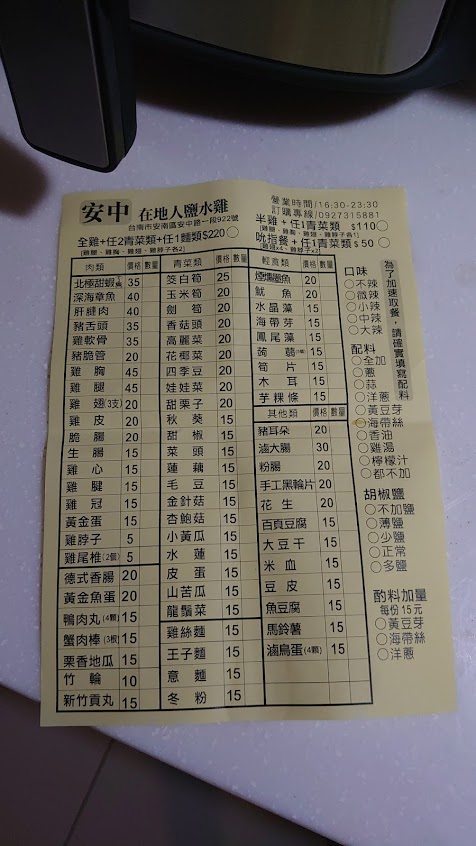 安中 在地人鹽水雞
台南市安南區安中路一段922號
營業時間/16:30-23:30
訂購專線/0927315881
全雞+任2青菜類+任1麵類$220○
半雞+任1青菜類 $110○
吮指餐+任1青菜類$50○
肉類 價格 數量
北極甜蝦 35
深海章魚 40
肝腱肉 40
豬舌頭 35
雞軟骨 35
豬脆管 20
雞胸 45
雞腿 45
雞翅(3支) 20
雞皮 20
脆腸 20
生腸 15
雞心 15
雞腱 15
雞冠 15
黃金蛋 15
雞脖子 5
雞尾椎(2個) 5
德式香腸 20
黃金魚蛋 20
鴨肉丸(4顆) 15
蟹肉棒(3根) 15
栗香地瓜 15
竹輪 10
新竹貢丸 15
青菜類 價格 數量
筊白筍 25
玉米筍 20
劍筍 20
香菇頭 20
高麗菜 20
花椰菜 20
四季豆 20
娃娃菜 20
甜栗子 20
秋葵 15
甜椒 15
菜頭 15
蓮藕 15
毛豆 15
金針菇 15
杏鮑菇 15
小黃瓜 15
水蓮 15
皮蛋 15
山苦瓜 15
龍鬚菜 15
雞絲麵 15
王子麵 15
意麵 15
冬粉 15
輕煮類 價格 數量
煙燻墨魚 20
魷魚 20
水晶藻 15
海帶芽 15
鳳尾藻 15
蒟蒻 15
筍片 15
木耳 15
芋粿條 15
其他類 價格 數量
豬耳朵 20
滷大腸 30
粉腸 20
手工黑輪片 20
花生 20
百頁豆腐 15
大豆干 15
米血 15
豆皮 15
魚豆腐 15
馬鈴薯 15
滷鳥蛋(4顆) 15
為了加速取餐，請確實填寫配料
口味
○不辣
○微辣
○小辣
○中辣
○大辣
配料
○全加
○蔥
○蒜
○洋蔥
○黃豆芽
○海帶絲
○香油
○雞湯
○檸檬汁
○都不加
胡椒鹽
○不加鹽
○薄鹽
○少鹽
○正常
○多鹽
酌料加量
每份15元
○黃豆芽
○海帶絲
○洋蔥